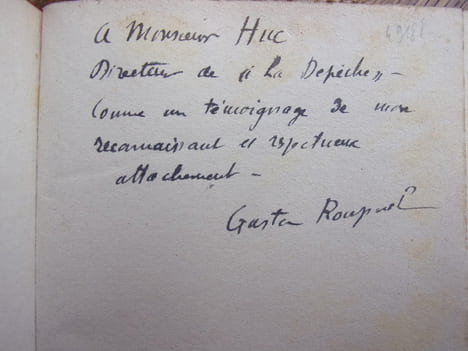 A Monsieur Huc
Directeur de "La Depêche" -
Comme un témoignage de mon
reconnaissant et respectueux
attachement -
Gaston Roupnel